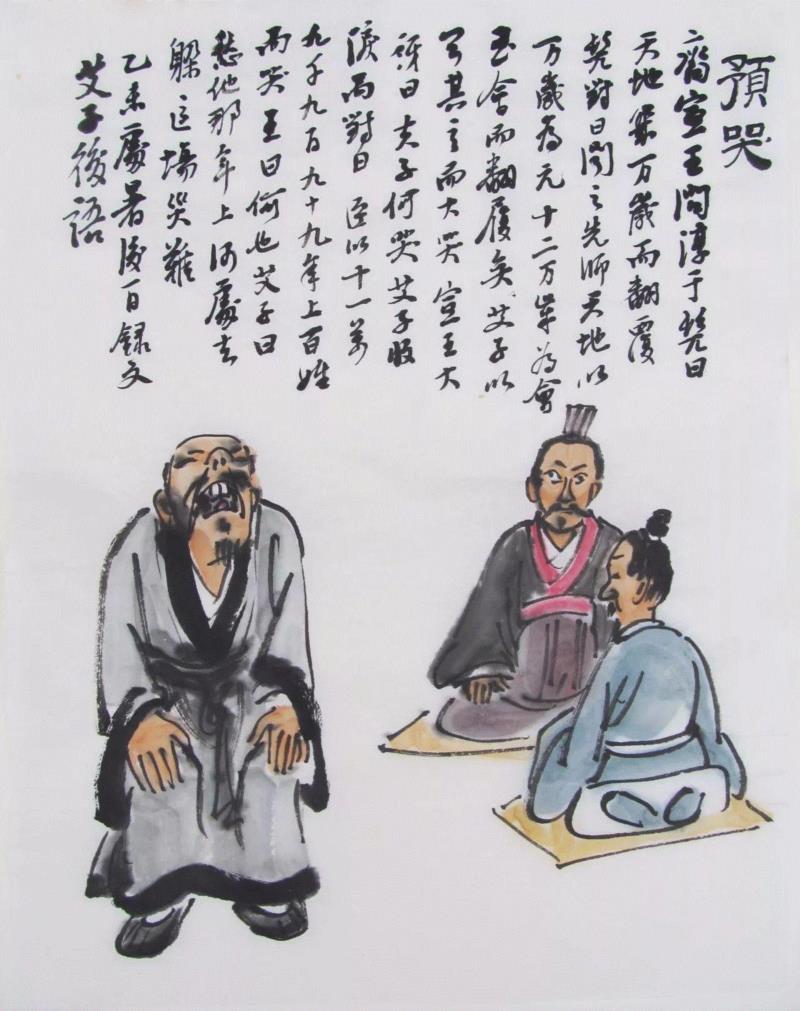 預哭
齊宣王問淳于髡曰
天地幾万歲而翻覆
髡對曰聞之先師天地以
万歲為元十二万歲為會
至會而翻覆矣艾子以
其言而大哭宣王大
訝曰夫子何哭艾子收
淚而對曰臣以十一萬
九千九百九十九年上百姓
而哭王曰何也艾子曰
愁他那年上何處去
躲這場災難
乙未處暑後一日錄文
艾子後語